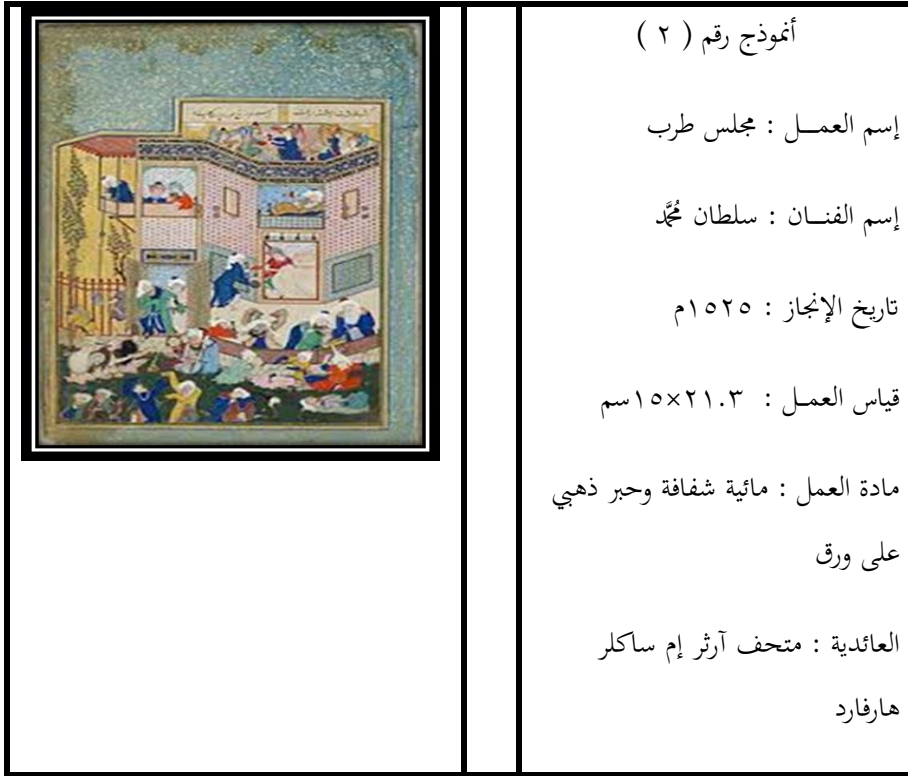 أنموذج رقم ( ٢ )
إسم العمــل : مجلس طرب
إسم الفنــان : سلطان مُحَّد
تاريخ الإنجاز : ١٥٢٥م
قياس العمــل : ٢١.٣×١٥سم
مادة العمل : مائية شفافة وحبر ذهبي
على ورق
العائدية : متحف آرثر إم ساكلر
هارفارد